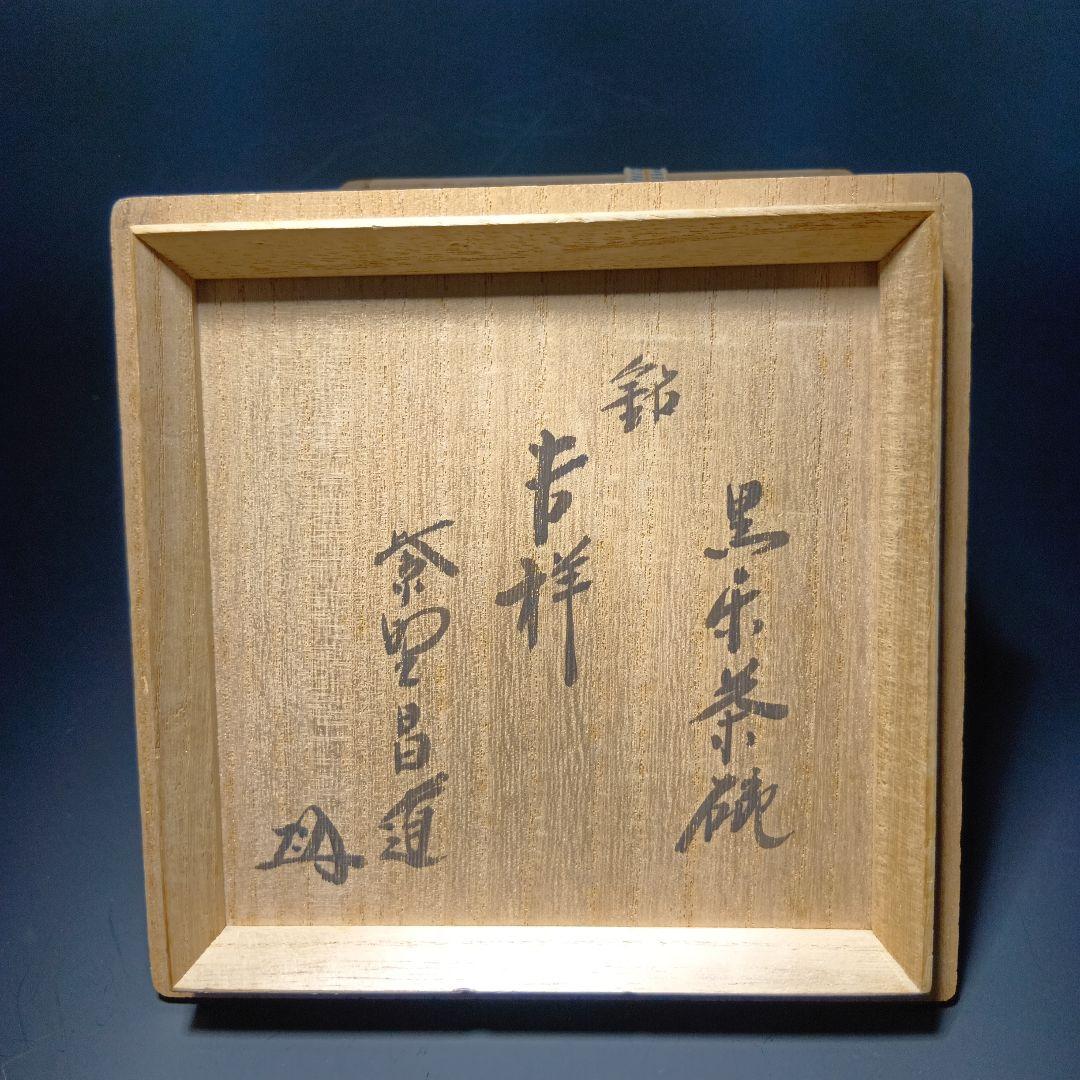 黒楽茶碗
銘
吉祥
紫野昌道